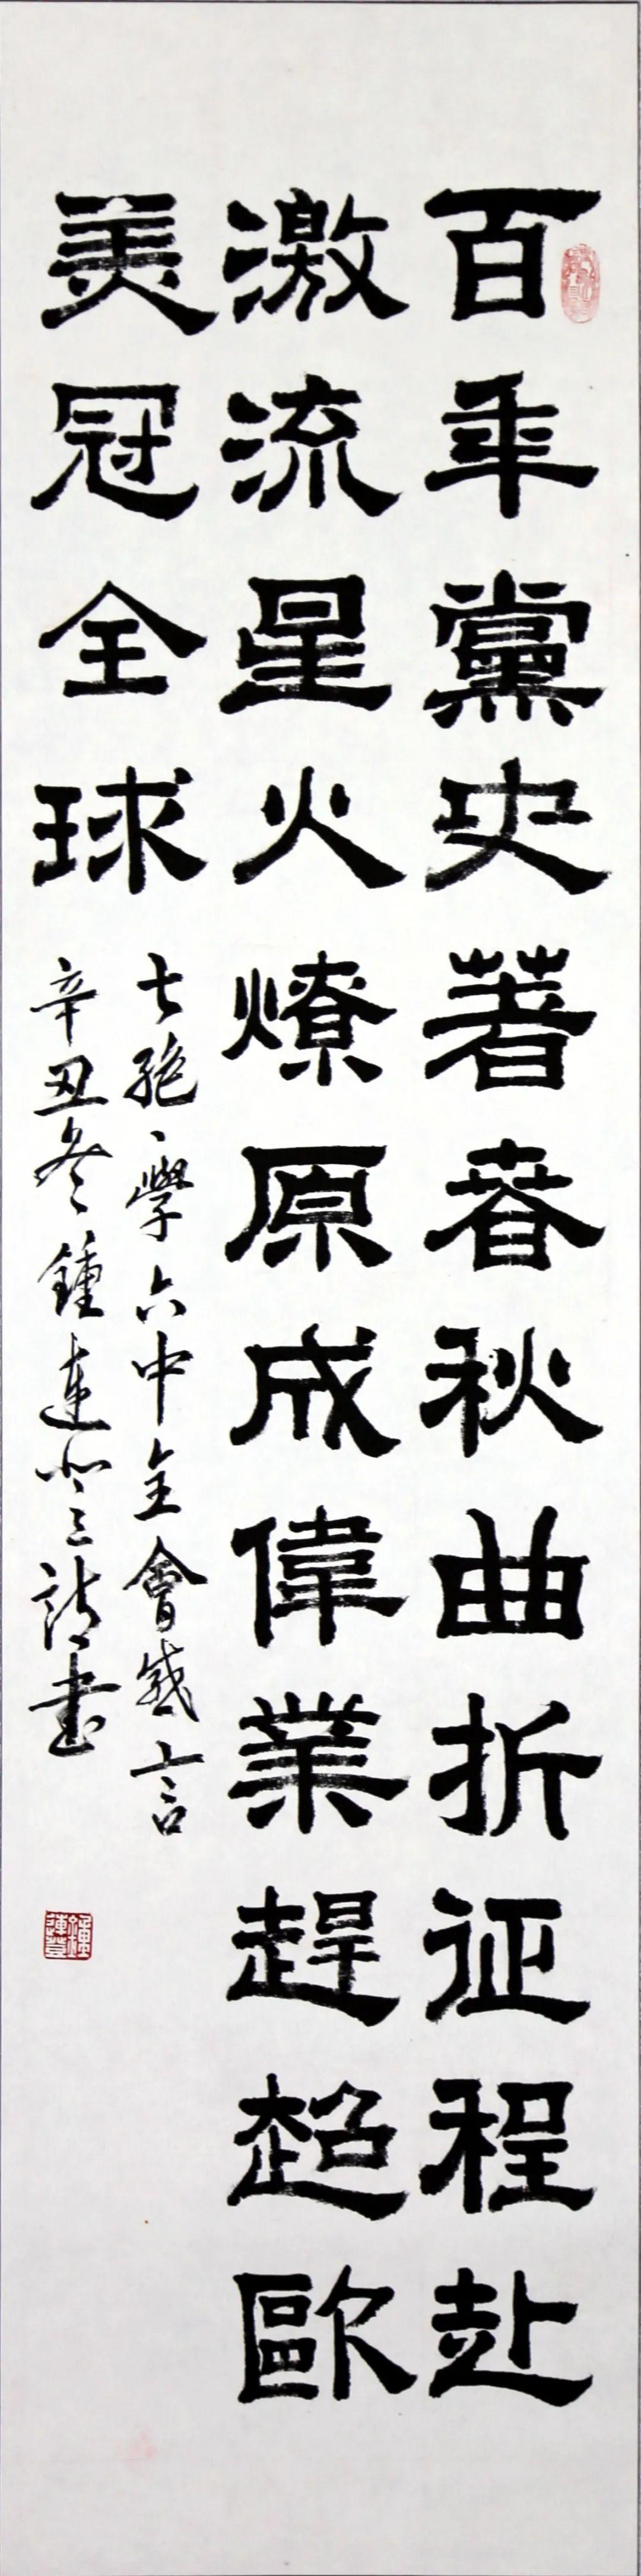 百年黨史著春秋曲折征程赴
激流星火燎原成偉業趕超歐
美冠全球
七絕、學六中全會感言
辛丑冬鍾連登詩書
鍾連登